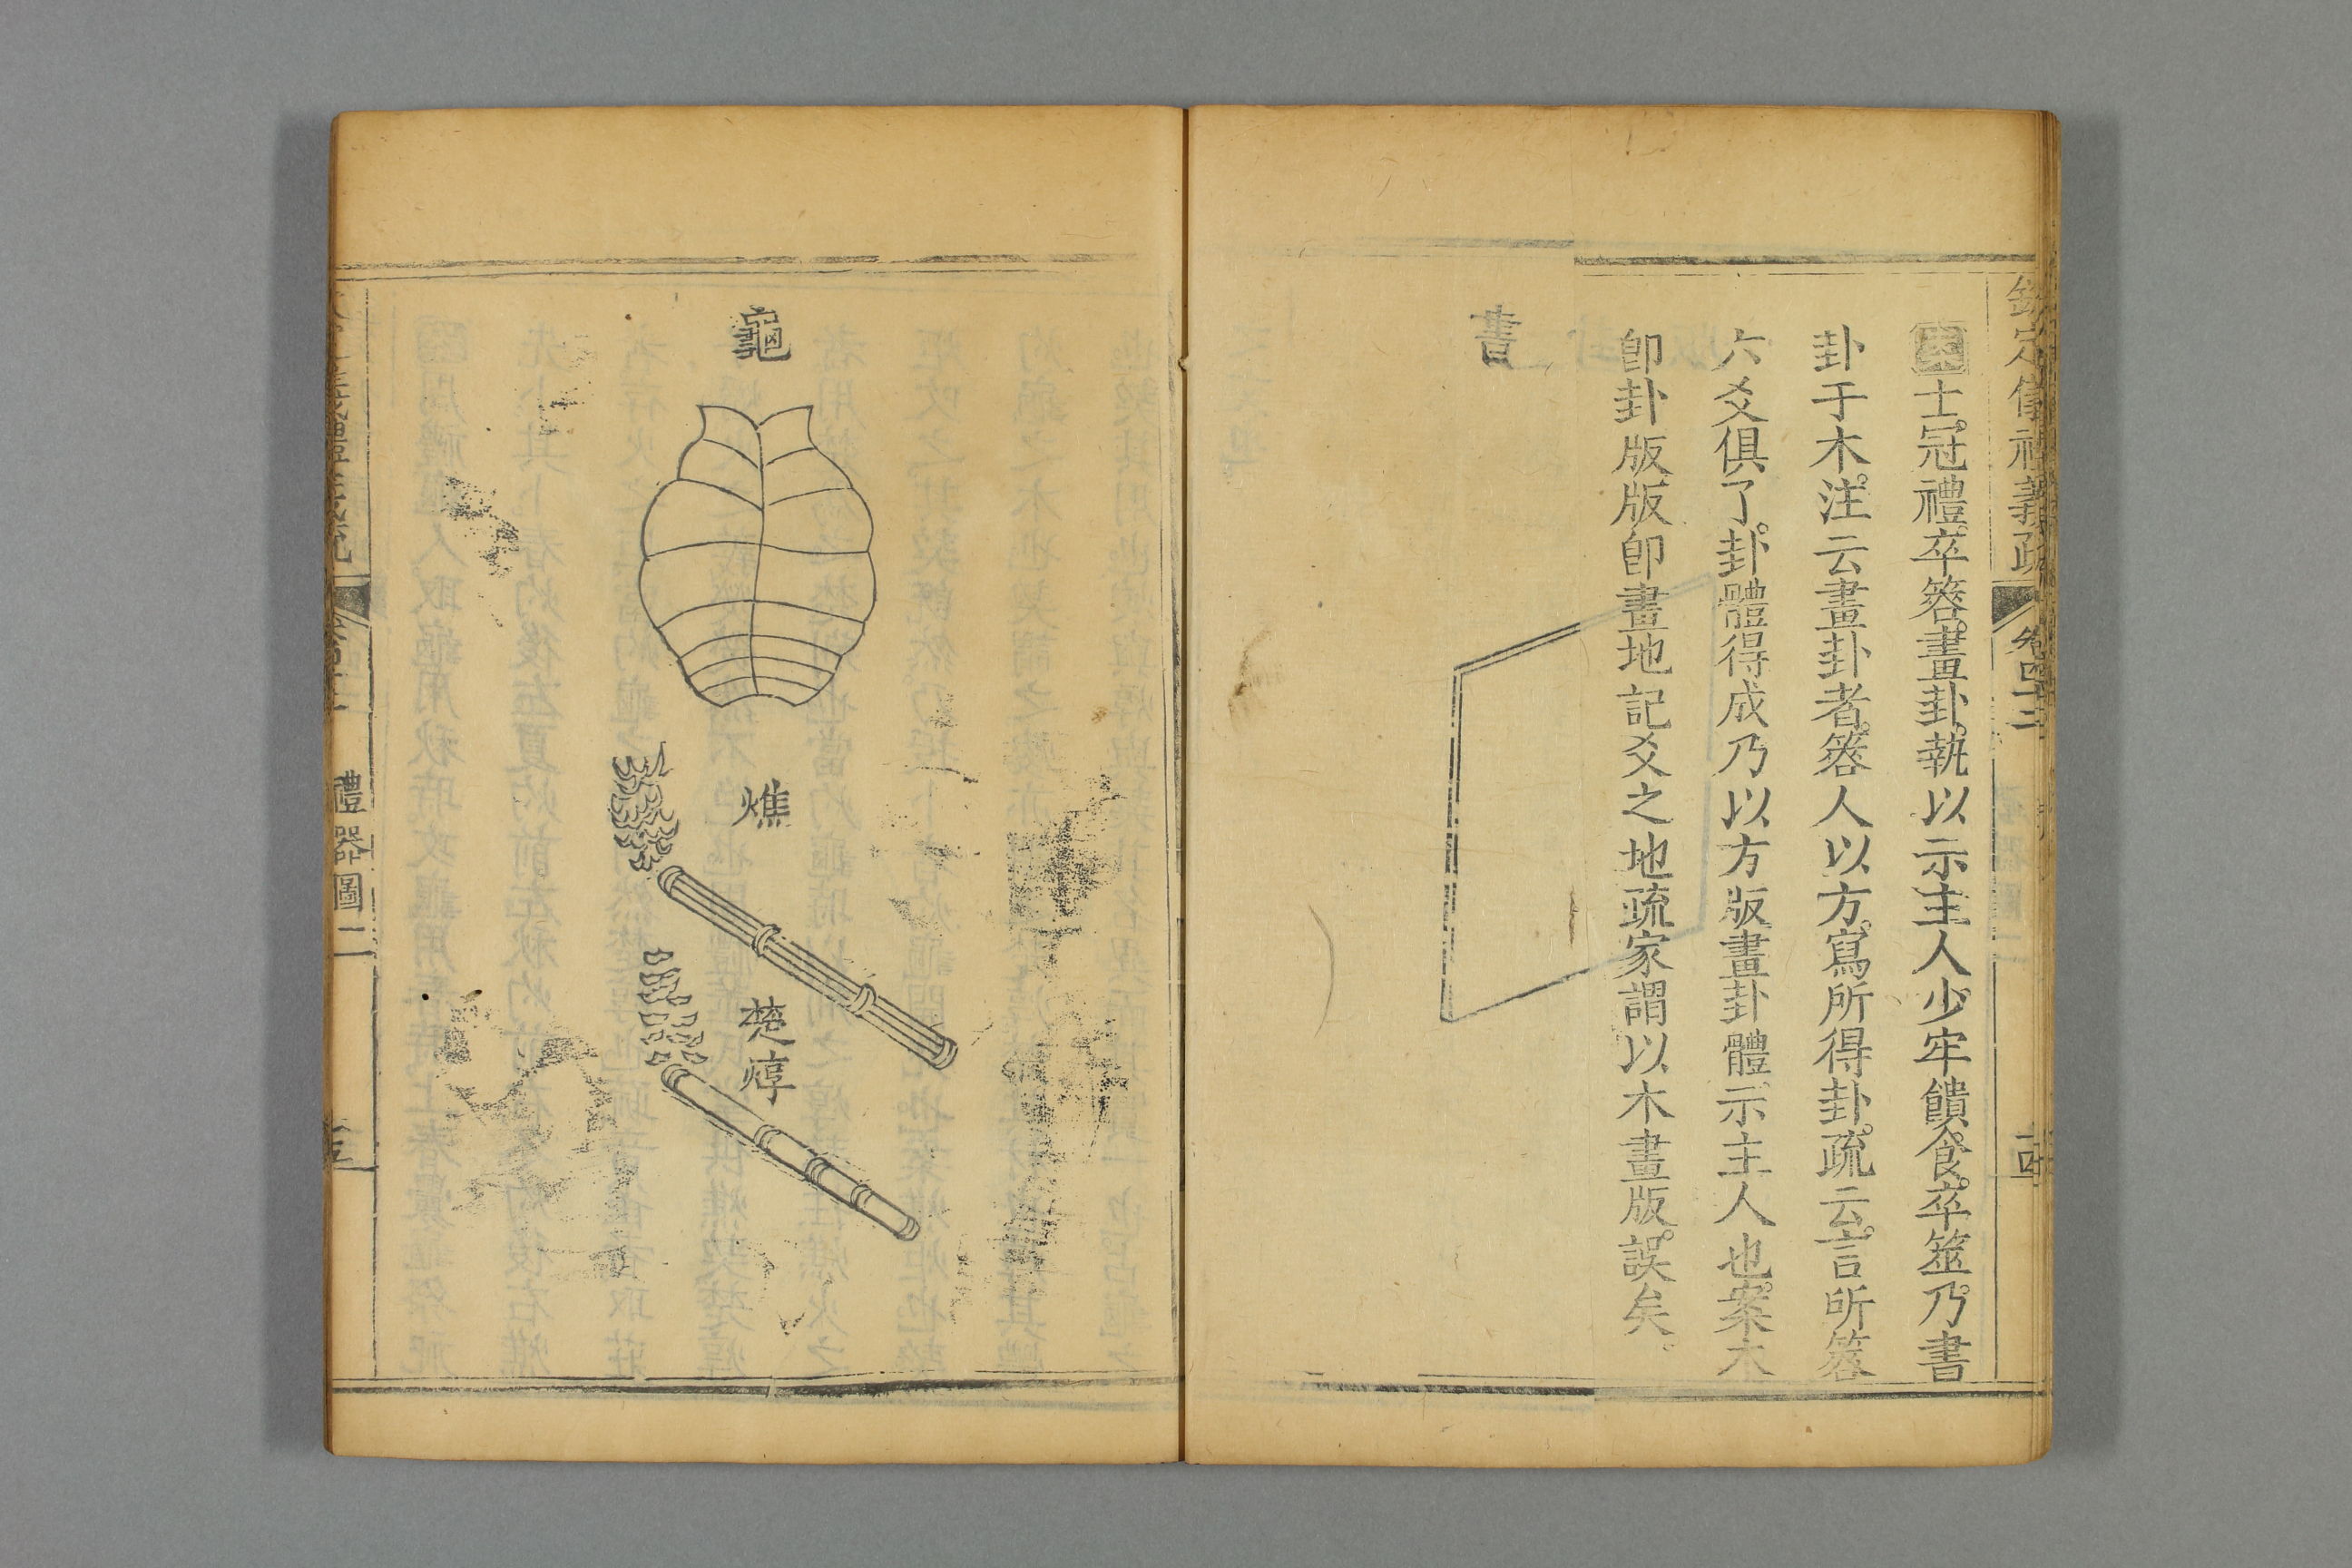 欽定儀禮義疏 卷四十二
士冠禮卒簭畫卦執以示主人少牢饋食卒筮乃書
卦于木注云畫卦者簭人以方寫所得卦疏云言所簭
六爻俱了卦體得成乃以方版畫卦體示主人也案木
卽卦版版卽畫地記爻之地疏家謂以木畫版誤矣
書
龜
燋
楚焞
禮器圖二